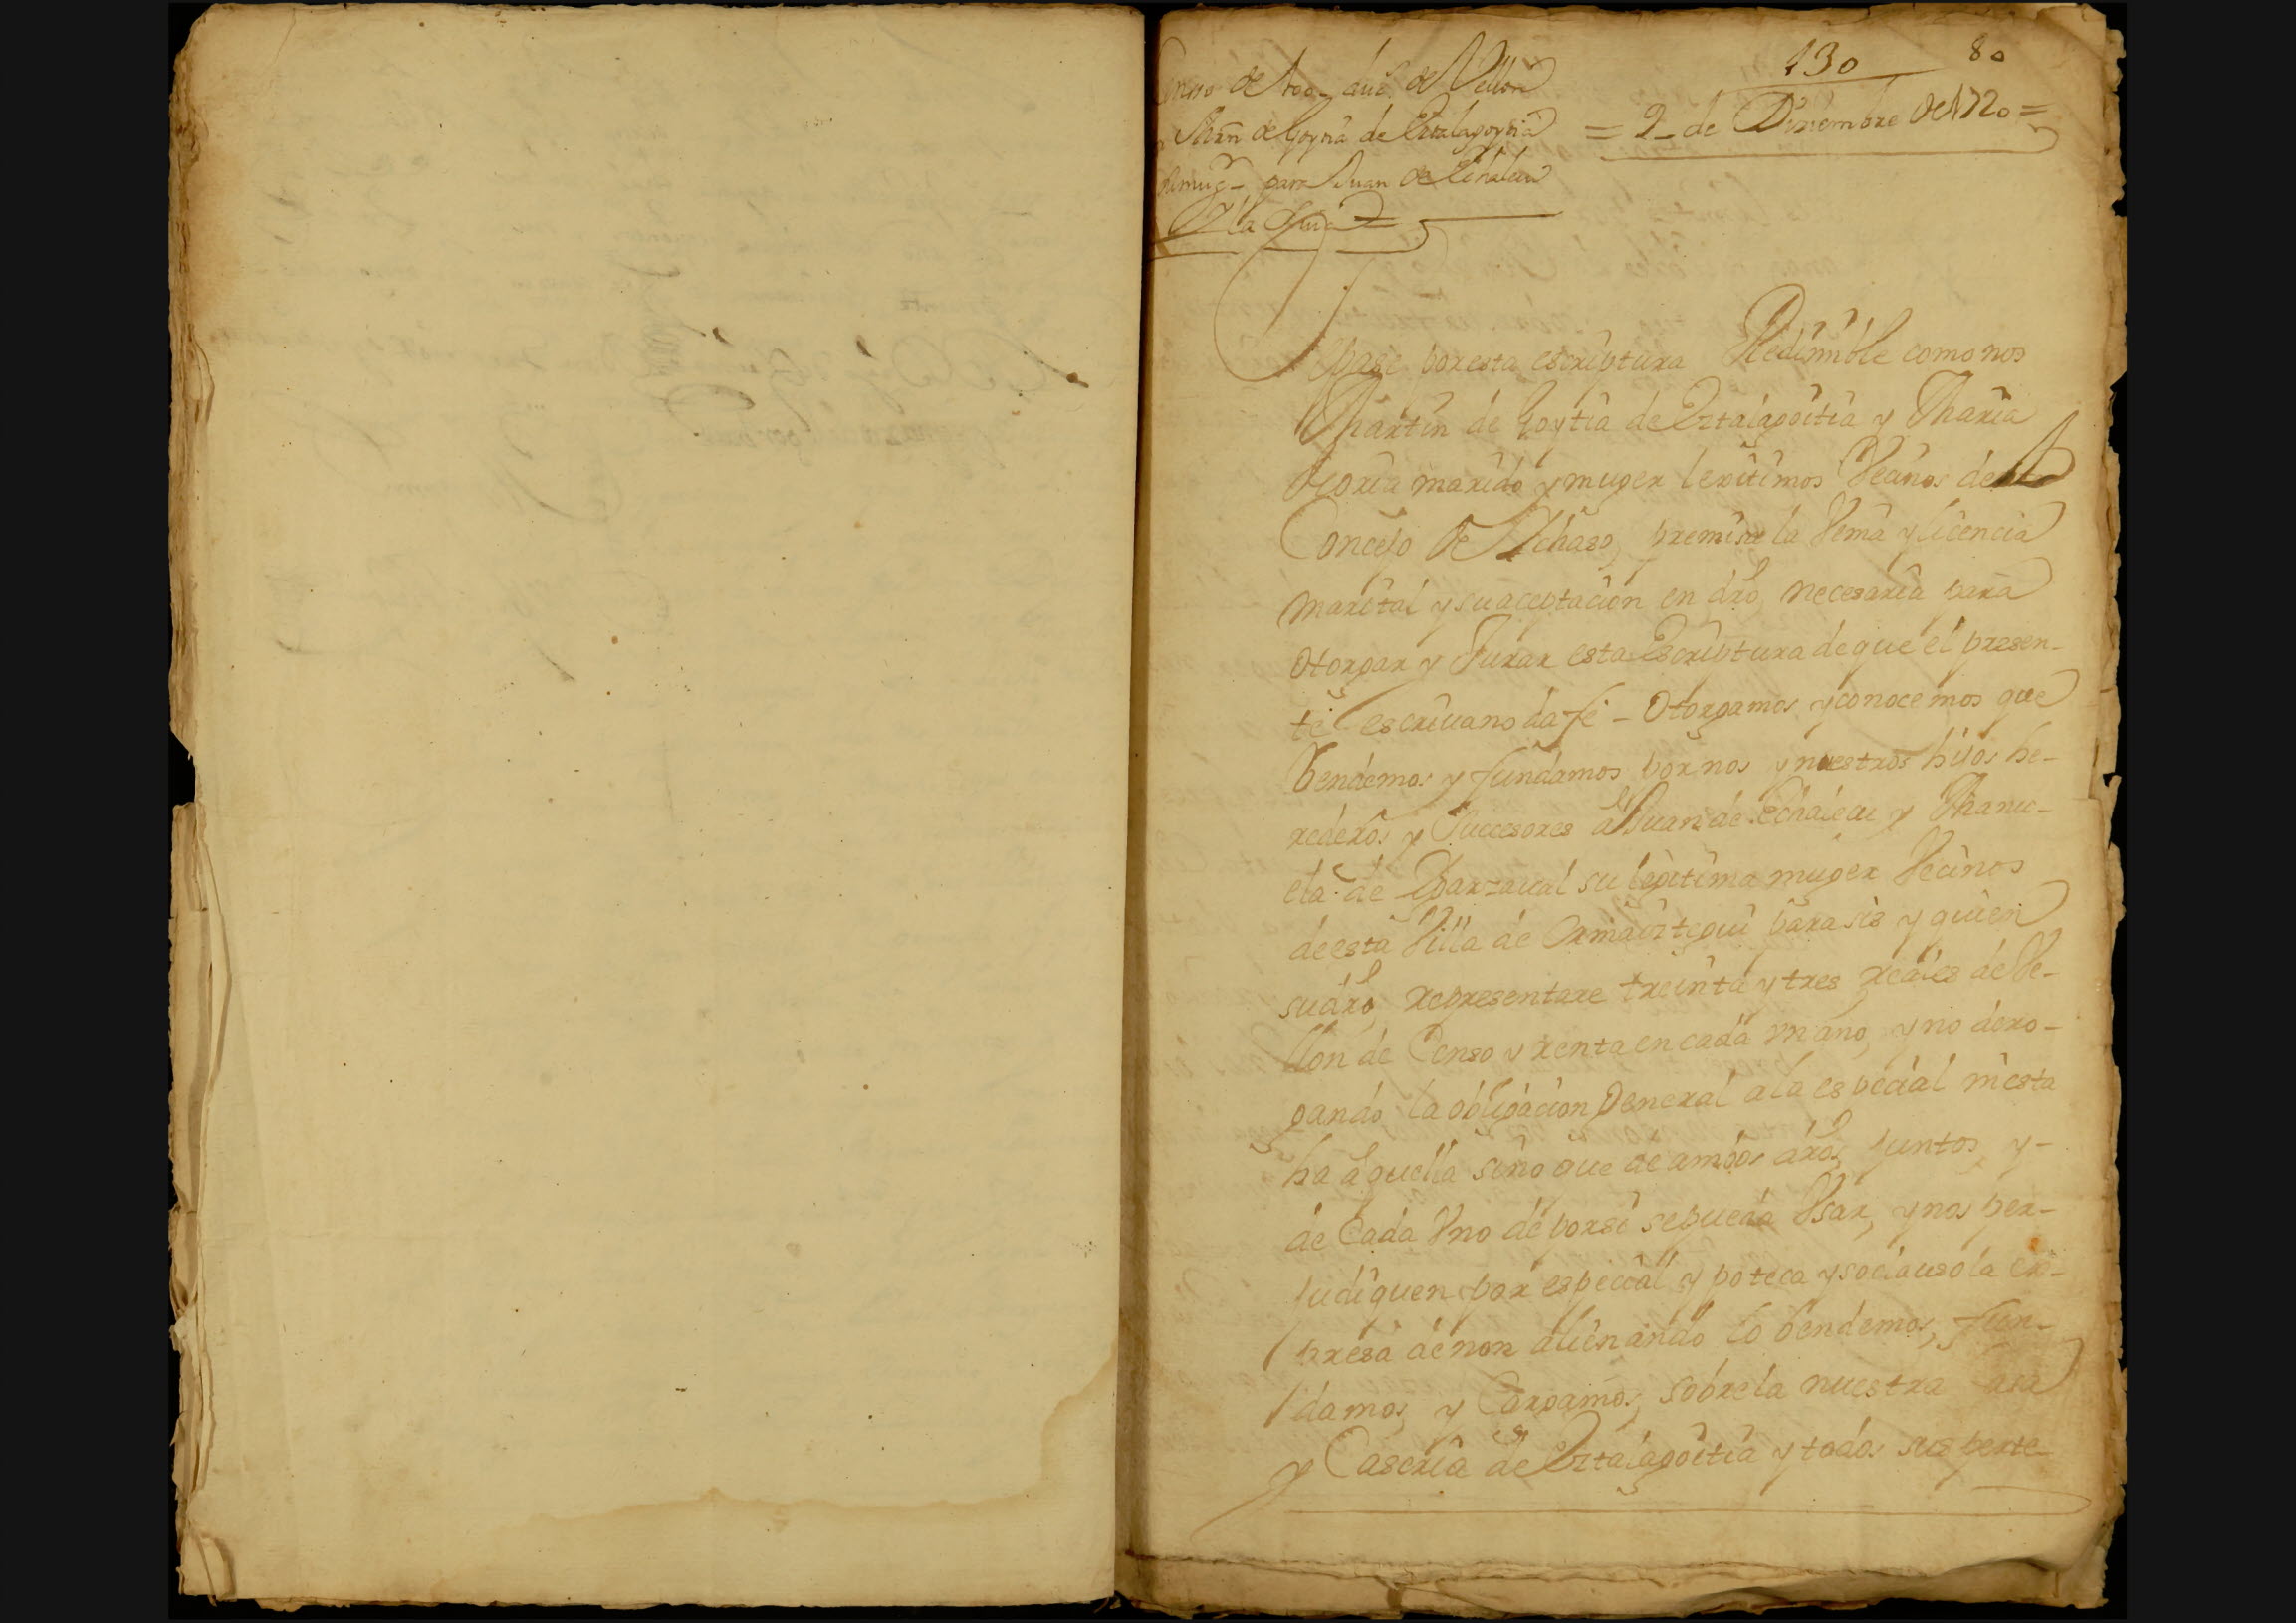 130 80
de 100 duc.s de Vellon
Mrn de Goytia de Eztalagoytia
= 2 de Diziembre de 1720 =
para Juan de Echalecu
y la suia
Sepase por esta escriptura Redimible como nos
Martin de Goytia de Eztalagoitia y Maria
marido y muger lexitimos Vecinos de este
Concejo de Ichaso, premisa la Venia y licencia
marital y su aceptacion en dro necesaria para
otorgar y Jurar esta Escriptura de que el presen-
te escriuano da fe - Otorgamos y conocemos que
Vendemos y fundamos por nos y nuestros hijos he-
rederos y Succesores a Juan de Echalecu y Manu-
ela de Ygarzaual su legitima muger Vecinos
de esta Villa de Ormaiztegui para sis y quien
su dro representare treinta y tres reales de Ve-
llon de Censo y renta en cada vn ano, y no dero-
gando la obligacion General a la especial ni esta
ha aquella sino que de ambos dros juntos y -
de Cada Vno de por si se pueda Vsar, y nos per-
judiquen por especial ypoteca y so clausola ex-
presa de non alienando lo bendemos, fun-
damos, y Cargamos, sobre la nuestra Casa
y Caseria de Eztalagoitia y todos sus perte-